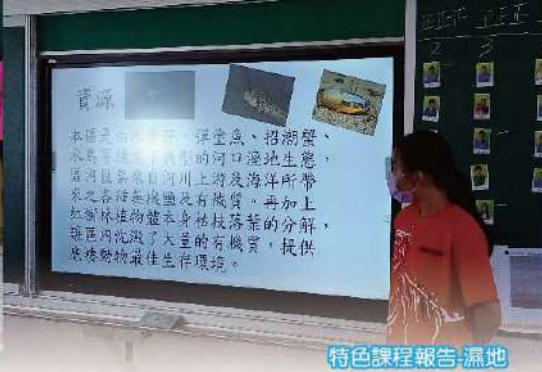 資源
本區是由水筆仔、彈塗魚、招潮蟹、
水鳥等構成了典型的河口溼地生態,
區內匯集來自河川上游及海洋所帶
來之各種無機鹽及有機質。再加上
紅樹林植物體本身枯枝落葉的分解,
雖區內沈澱了大量的有機質,提供
底棲動物最佳生存環境。
2 3
特色課程報告-濕地